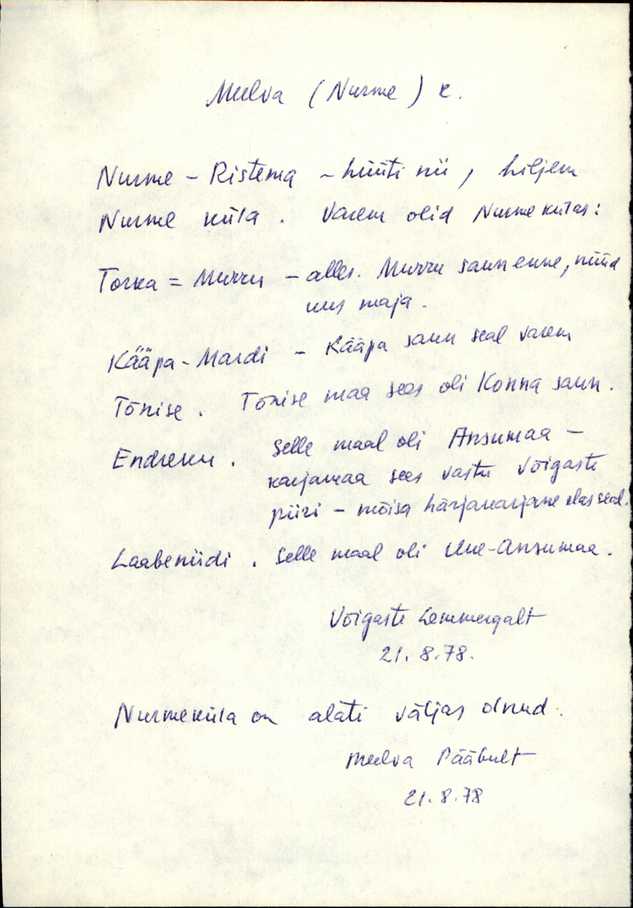 Mulva (Nurme) k.
Nurme - Ristema - hüüti nii, hiljem
Nurme küla. Varem olid Nurme külas:
Torka = Murru - alles. Murru saun enne, nüüd
uus maja.
Kääpa-Mardi - Kääpa saun seal varem
Tõnise. Tõnise maa sees oli Konna saun.
Endreku. Selle maal oli Ansumaa -
karjamaa sees vastu Võigaste
piiri - mõisa härjakarjane elas seal.
Laabeniidi. Selle maal oli Uue-Ansumaa.
Võigaste Lemmergalt
21.8.78.
Nurmeküla on alati väljas olnud.
Meelva Pääbult
21.8.78